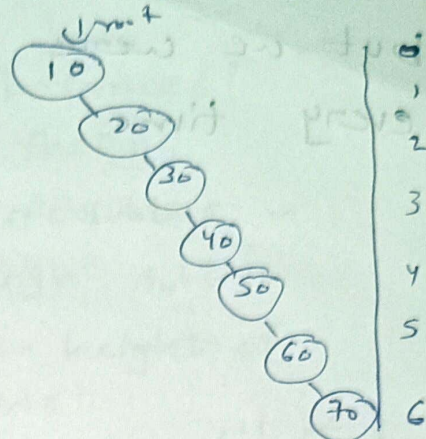 root
10
20
30
40
50
60
70
0
1
2
3
4
5
6